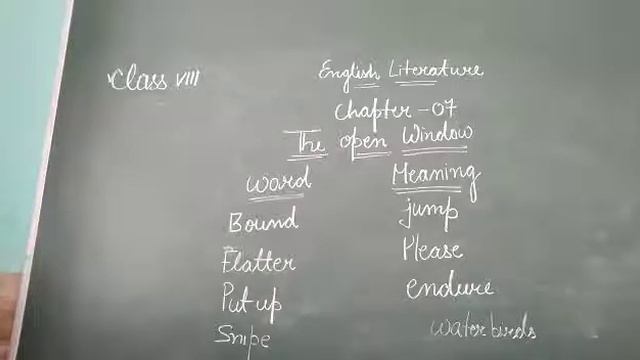 Class VIII
English Literature
Chapter - 07
The open Window
Word Meaning
Bound jump
Flatter Please
Put up endure
Snipe water birds